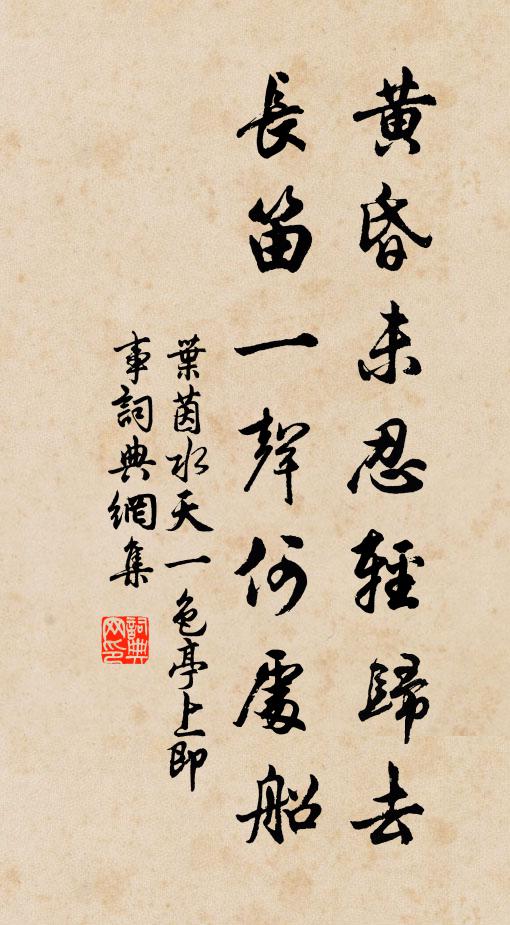 黃昏未忍輕歸去
長笛一聲何處船
葉茵水天一色亭上即
事詞典網集
詞典
网印